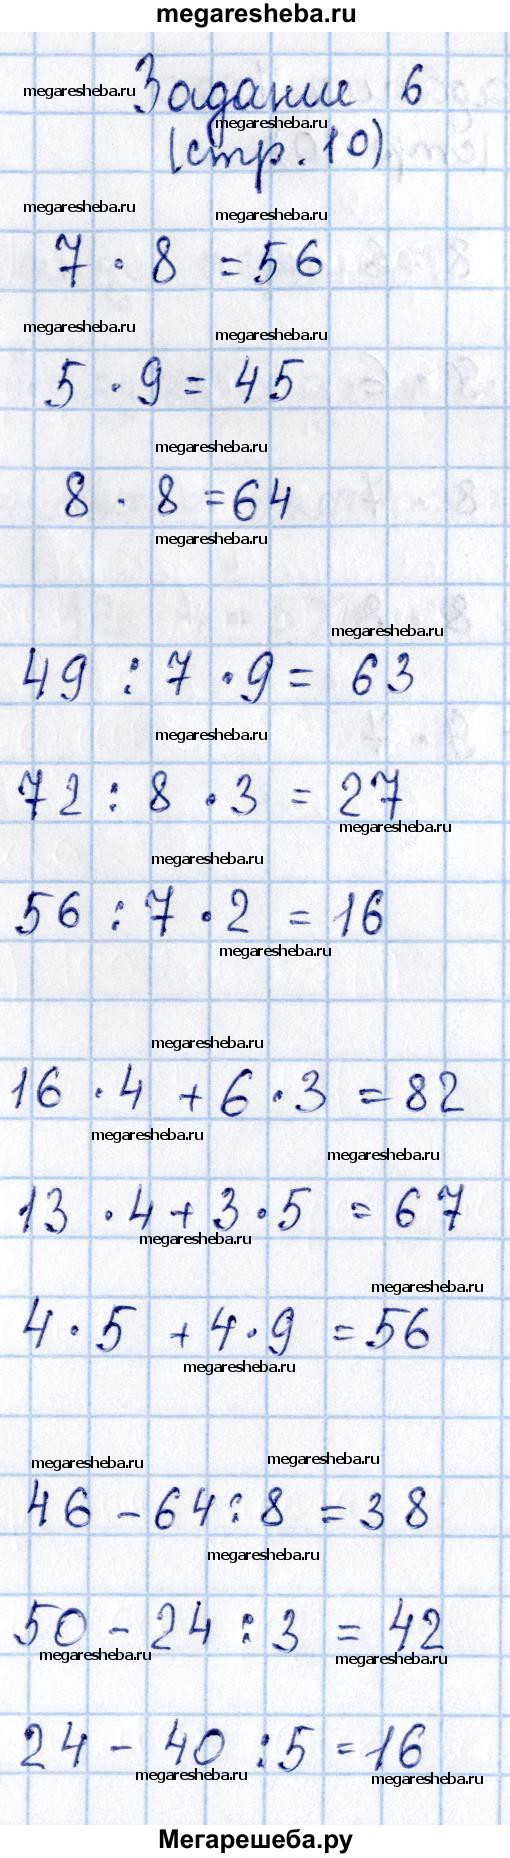 megaresheba.ru
Задание 6
megaresheba.ru
megaresheba.ru
(стр. 10)
megaresheba.ru
megaresheba.ru
7 · 8 = 56
megaresheba.ru
megaresheba.ru
5 · 9 = 45
megaresheba.ru
8 · 8 = 64
megaresheba.ru
megaresheba.ru
49 : 7 · 9 = 63
megaresheba.ru
72 : 8 · 3 = 27
megaresheba.ru
megaresheba.ru
56 : 7 · 2 = 16
megaresheba.ru
megaresheba.ru
16 · 4 + 6 · 3 = 82
megaresheba.ru
megaresheba.ru
13 · 4 + 3 · 5 = 67
megaresheba.ru
megaresheba.ru
4 · 5 + 4 · 9 = 56
megaresheba.ru
megaresheba.ru
megaresheba.ru
46 - 64 : 8 = 38
megaresheba.ru
50 - 24 : 3 = 42
megaresheba.ru
megaresheba.ru
24 - 40 : 5 = 16
megaresheba.ru
megaresheba.ru
Мегарешеба.ру